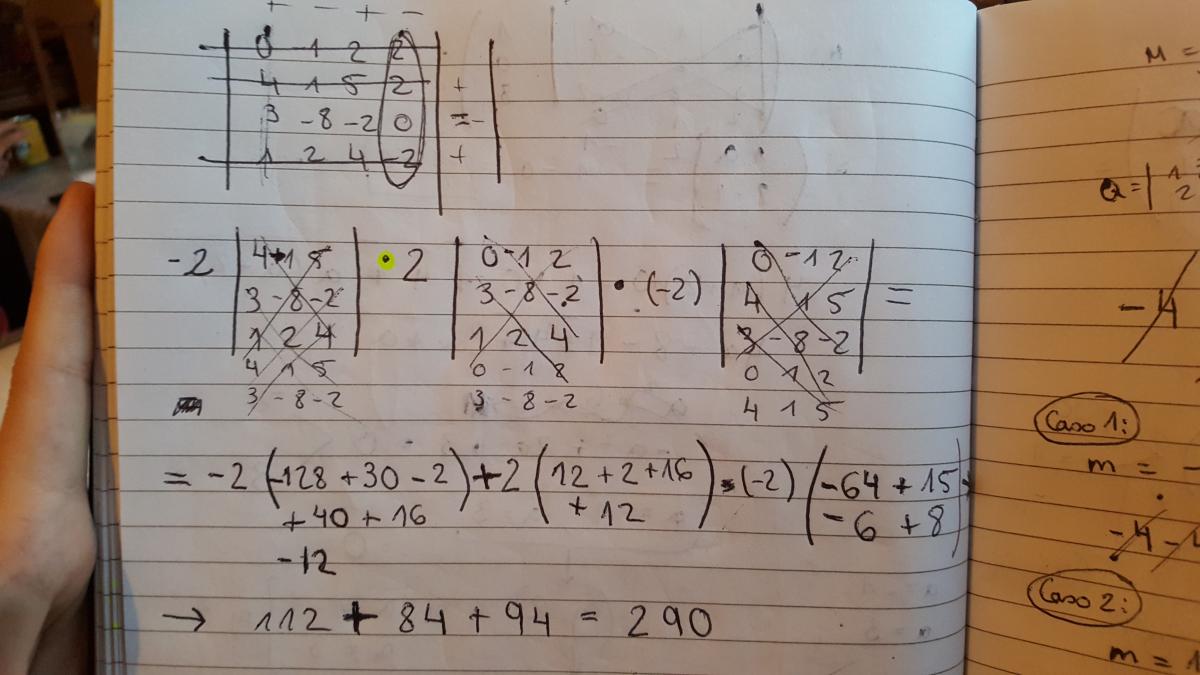 + - + -
| 0 -1 2 2 |
| 4 1 5 2 | +
| 3 -8 -2 0 | = -
| 1 2 4 -2 | +
M =
Q = | 1
2
-2 | 4 1 5 | • 2 | 0 -1 2 | • (-2) | 0 -1 2 | =
3 -8 -2 3 -8 -2 4 1 5
1 2 4 1 2 4 3 -8 -2
4 1 5 0 -1 2 0 -1 2
3 -8 -2 3 -8 -2 4 1 5
- 4
= -2 (-128 + 30 - 2) + 2 (12 + 2 + 16) • (-2) (-64 + 15
+ 40 + 16 + 12 - 6 + 8)
- 12
→ 112 + 84 + 94 = 290
Caso 1:
m = -
- 4 - 4
Caso 2:
m = 1